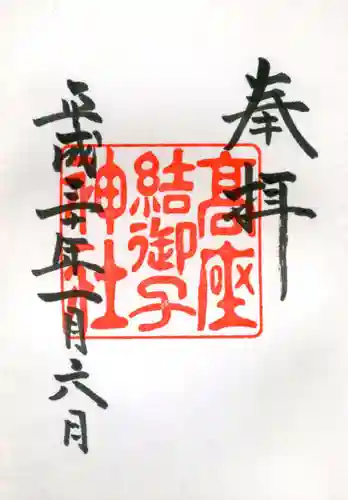 奉拝
髙座
結御子
神社
平成三十年一月六月